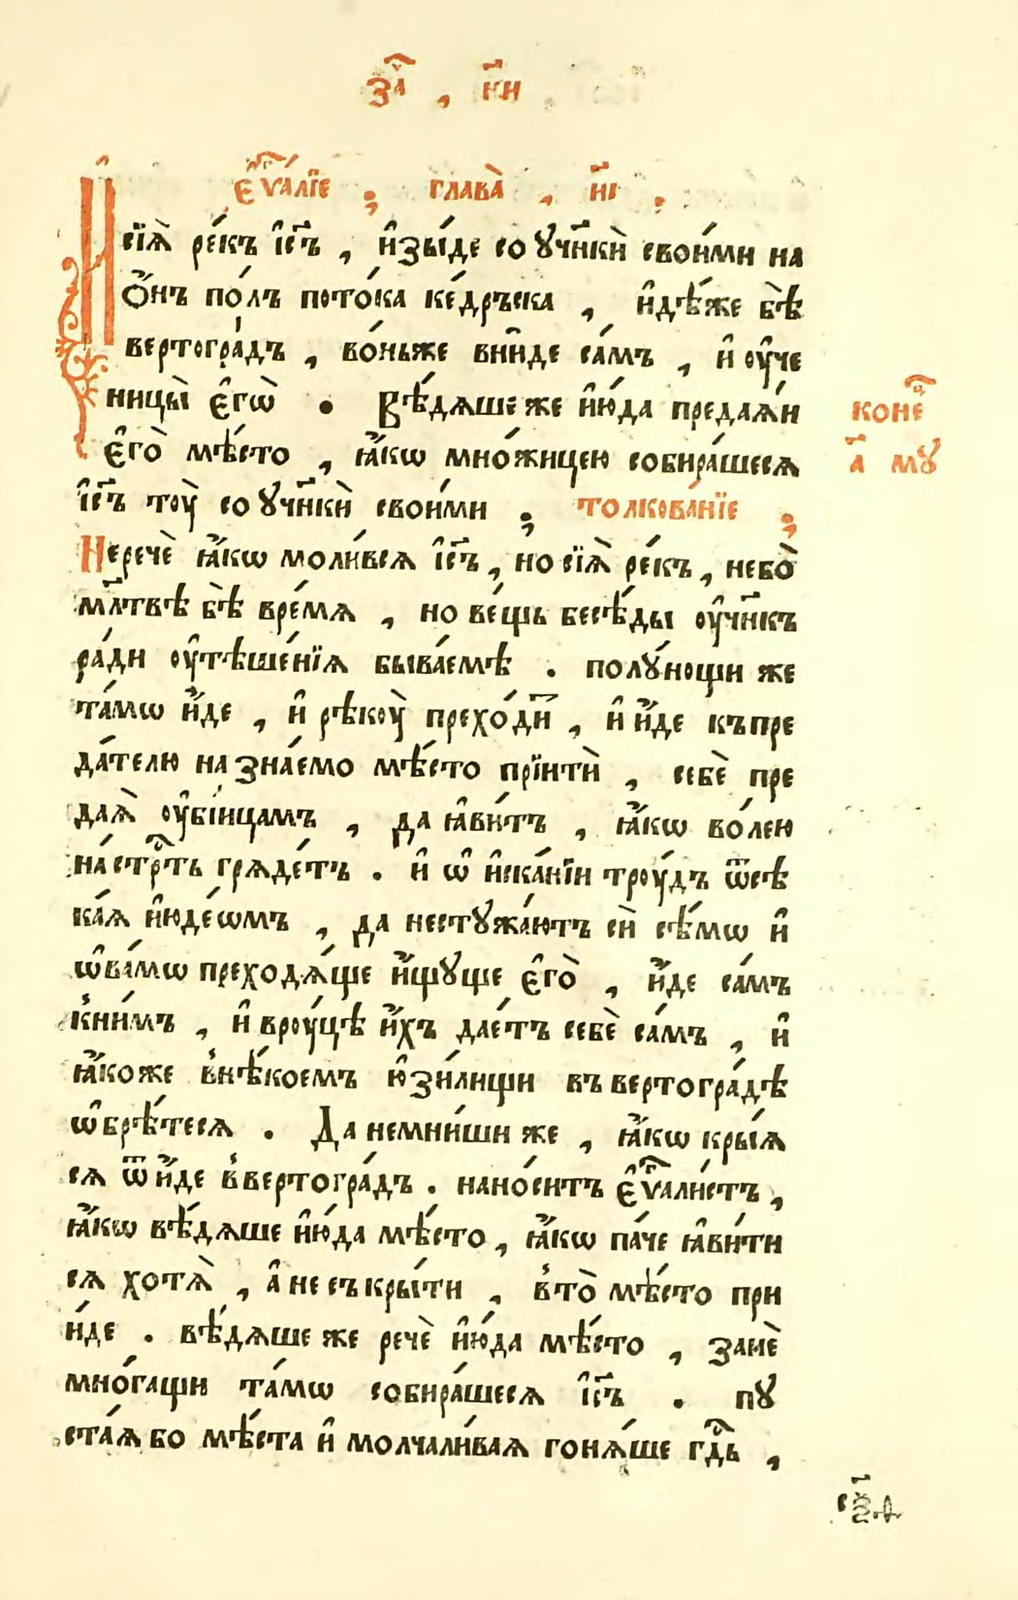 за҃ , н҃и
є҆ѵⷢ҇а́лїе ; глава̀ , и҃і .
И
сїѧ̀ ре́къ і҆с҃ъ , и҆зы́де со ᲂу҆чн҃кѝ свои́ми на
ѻ҆́нъ по́лъ пото́ка ке́дръска , и҆дѣ́же бѣ̀
вертогра́дъ , во́ньже вни́де са́мъ , и҆ ᲂу҆че
ницы̀ є҆гѡ̀ . Вѣ́дѧше же и҆ю́да предаѧ́и
є҆го̀ мѣ́сто , ꙗ҆́кѡ мно́жицею собира́шесѧ
і҆с҃ъ тᲂу̀ со ᲂу҆чн҃кѝ свои́ми ; толкова́нїе ;
коне́ⷰ҇
а҃ мꙋ
Неречѐ ꙗ҆́кѡ моли́всѧ і҆с҃ъ , но сїѧ̀ ре́къ , небо̀
мл҃твѣ бѣ̀ вре́мѧ , но ве́щь бесѣ́ды ᲂу҆чн҃къ
ра́ди ᲂу҆тѣше́нїѧ быва́емѣ . полꙋ́нощи же
та́мѡ и҆́де , и҆ рѣкᲂу̀ прехо́дⷩ҇и , и҆ и҆́де къпре
да́телю на зна́емо мѣ́сто прїитѝ , себѐ пре
даѧ̀ ᲂу҆бі́ицамъ , да ꙗ҆ви́тъ , ꙗ҆́кѡ во́лею
на́стрⷭ҇ть грѧде́тъ . и҆ ѡ҆ и҆ска́нїи трᲂу́дъ ѿсѣ
ка́ѧ и҆юде́ѡмъ , да нестꙋжа́ютъ сѝ сѣ́мѡ и҆
ѡ҆ва́мѡ преходѧ́ще и҆́щꙋще є҆го̀ , и҆́де са́мъ
кни́мъ , и҆ врᲂу́цѣ и҆́хъ дае́тъ себѐ са́мъ , и҆
ꙗ҆́коже внѣ́коемъ ю҆зи́лищи въ вертогра́дѣ
ѡ҆брѣ́тесѧ . Да немни́ши же , ꙗ҆́кѡ кры́ѧ
сѧ ѿи́де ввертогра́дъ . нано́ситъ є҆ѵⷢ҇али́стъ ,
ꙗ҆́кѡ вѣ́дѧше и҆ю́да мѣ́сто , ꙗ҆́кѡ па́че ꙗ҆ви́ти
сѧ хотѧ̀ , а҆ не съкры́ти , вто̀ мѣ́сто при
и́де . вѣ́дѧше же речѐ и҆ю́да мѣ́сто , занѐ
мно́гащи та́мѡ собира́шесѧ і҆с҃ъ . пꙋ
ста́ѧ бо мѣ́ста и҆ молчали́ваѧ гонѧ́ше гдⷭ҇ь ,